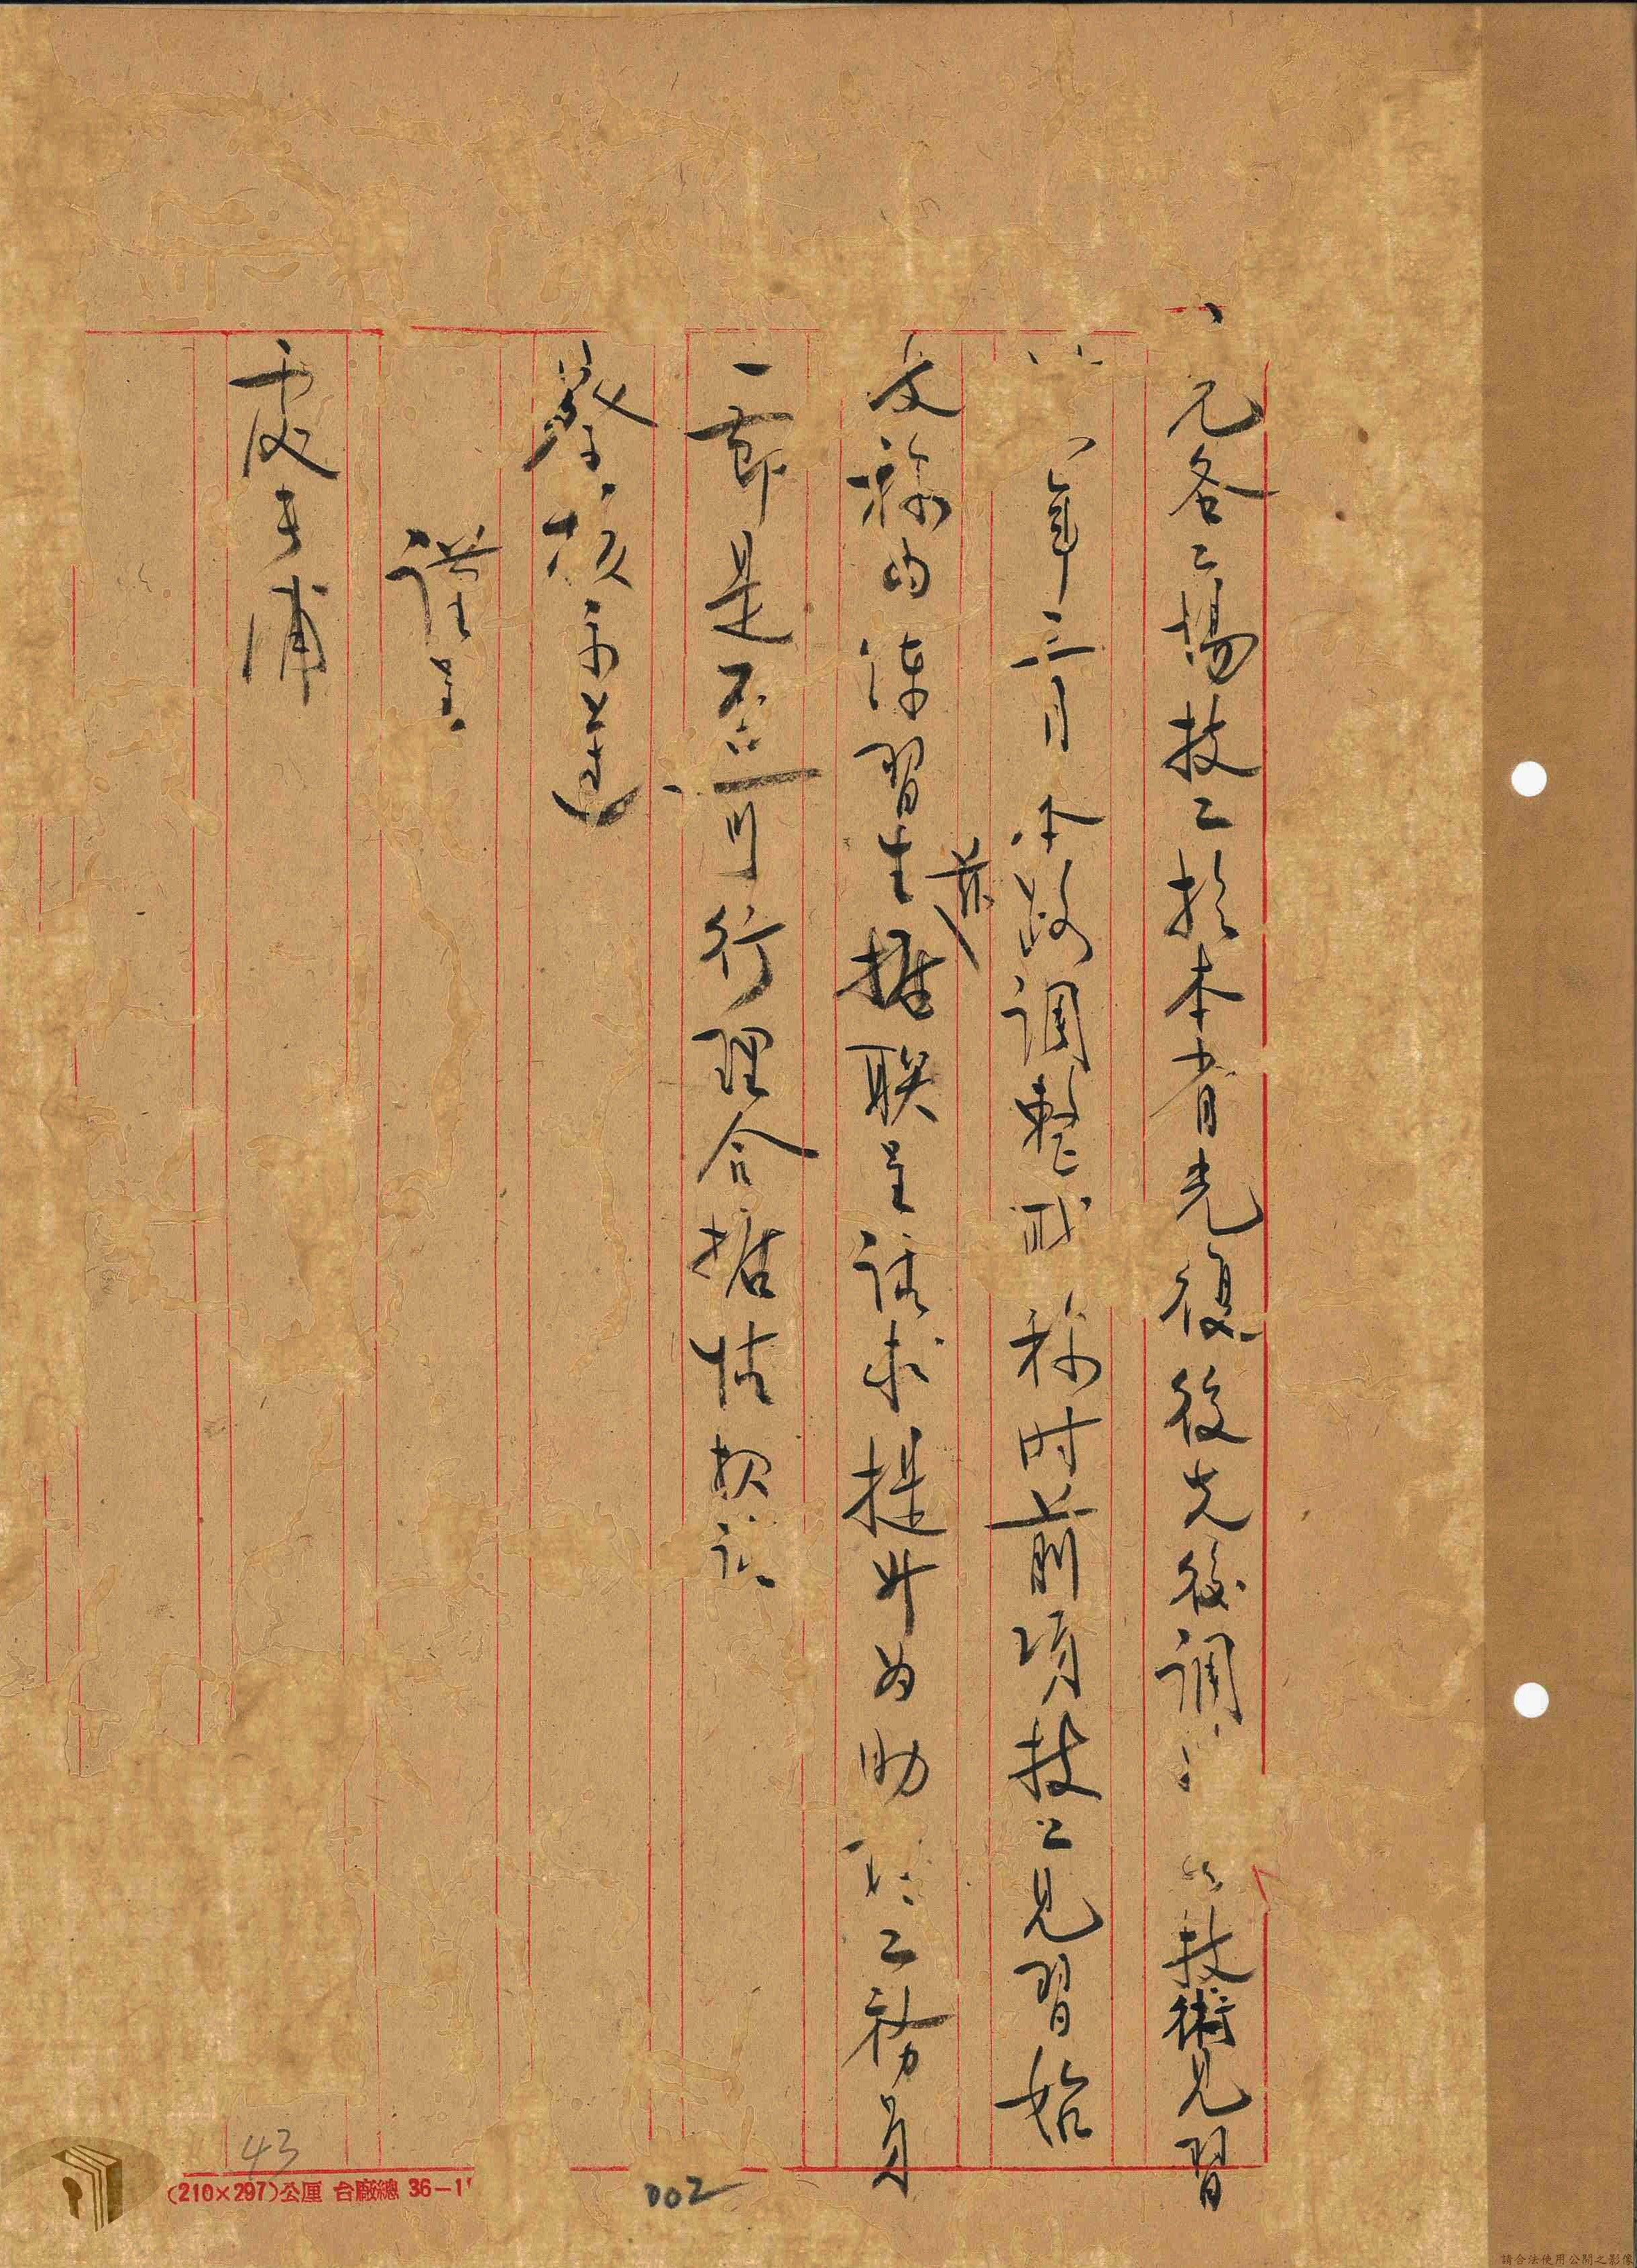 元各工場技工於本省光復後先後調技術見習
年三月本路調整职称时前項技工見習始
改称为练習生茲据联呈請求提升为助理工務員
一節是否可行理合据情报請
鑒核示遵
謹呈
處長浦
43
(210×297)公厘 台廠總 36-1
002
請合法使用公開之影像